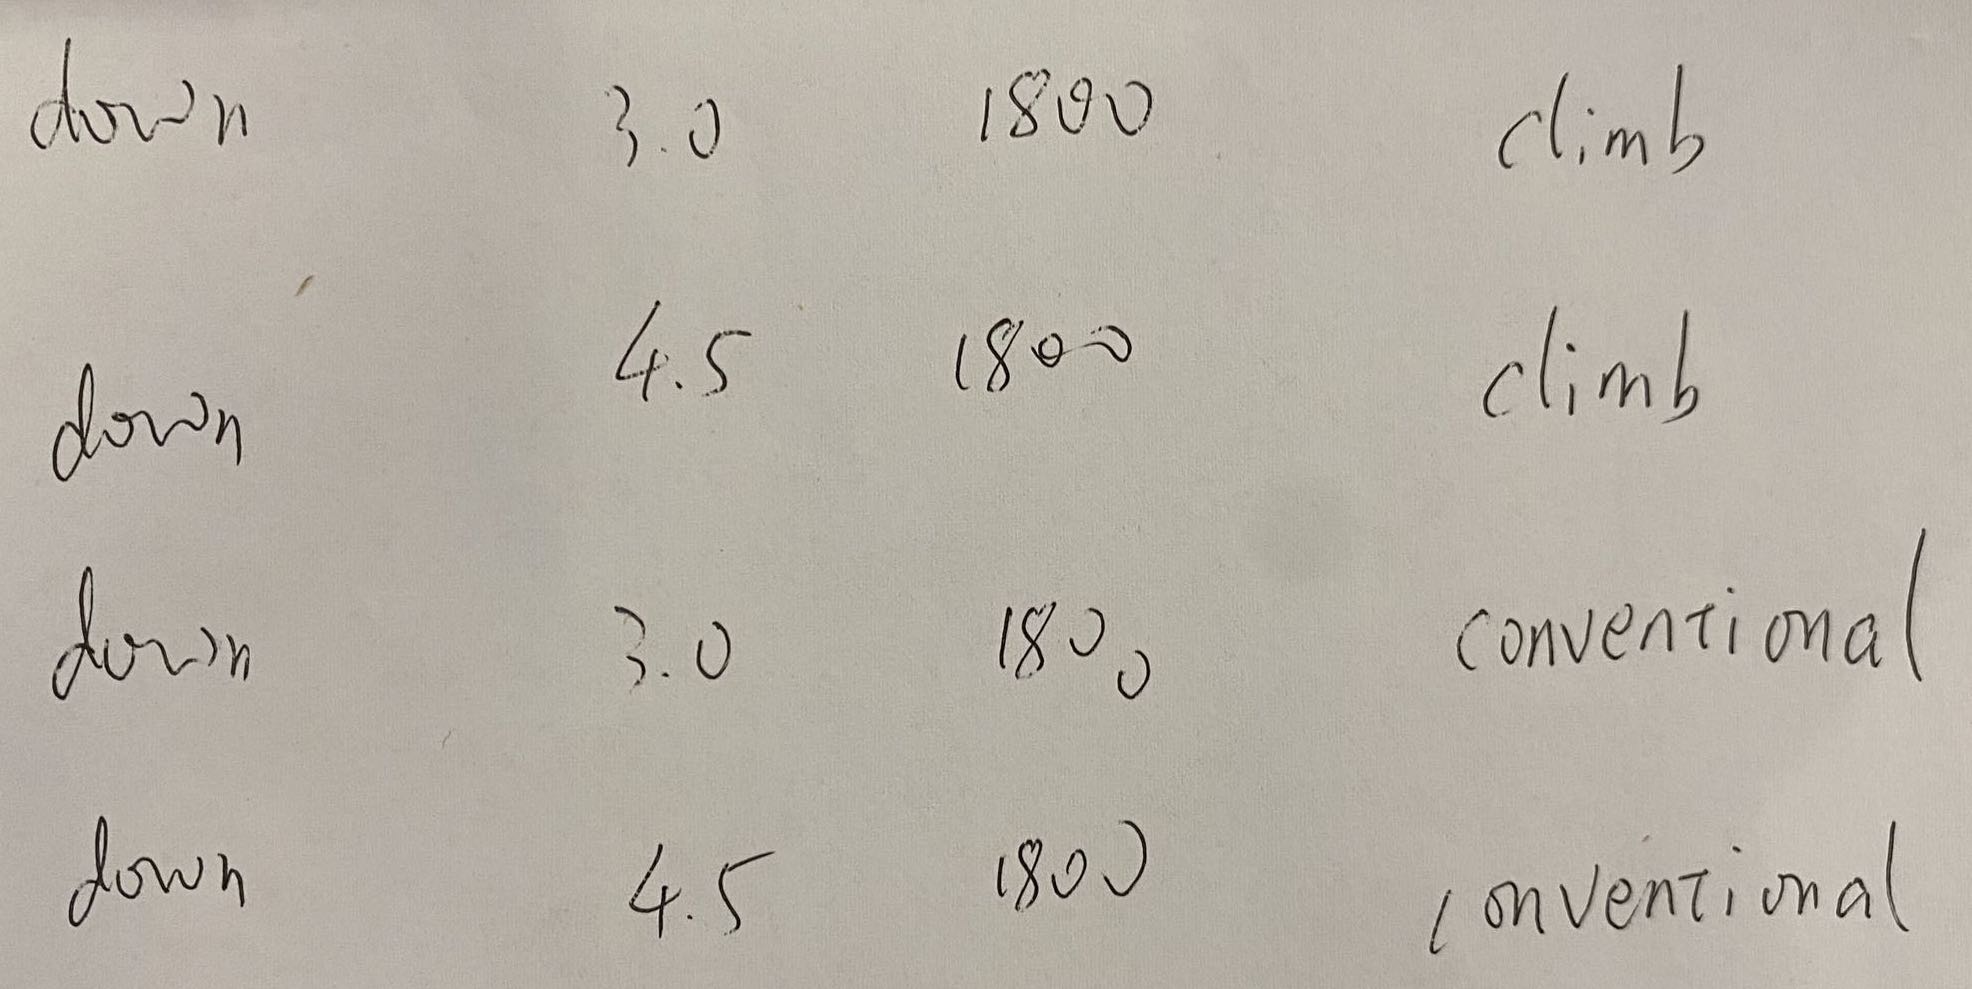 down 3.0 1800 climb
down 4.5 1800 climb
down 3.0 1800 conventional
down 4.5 1800 conventional